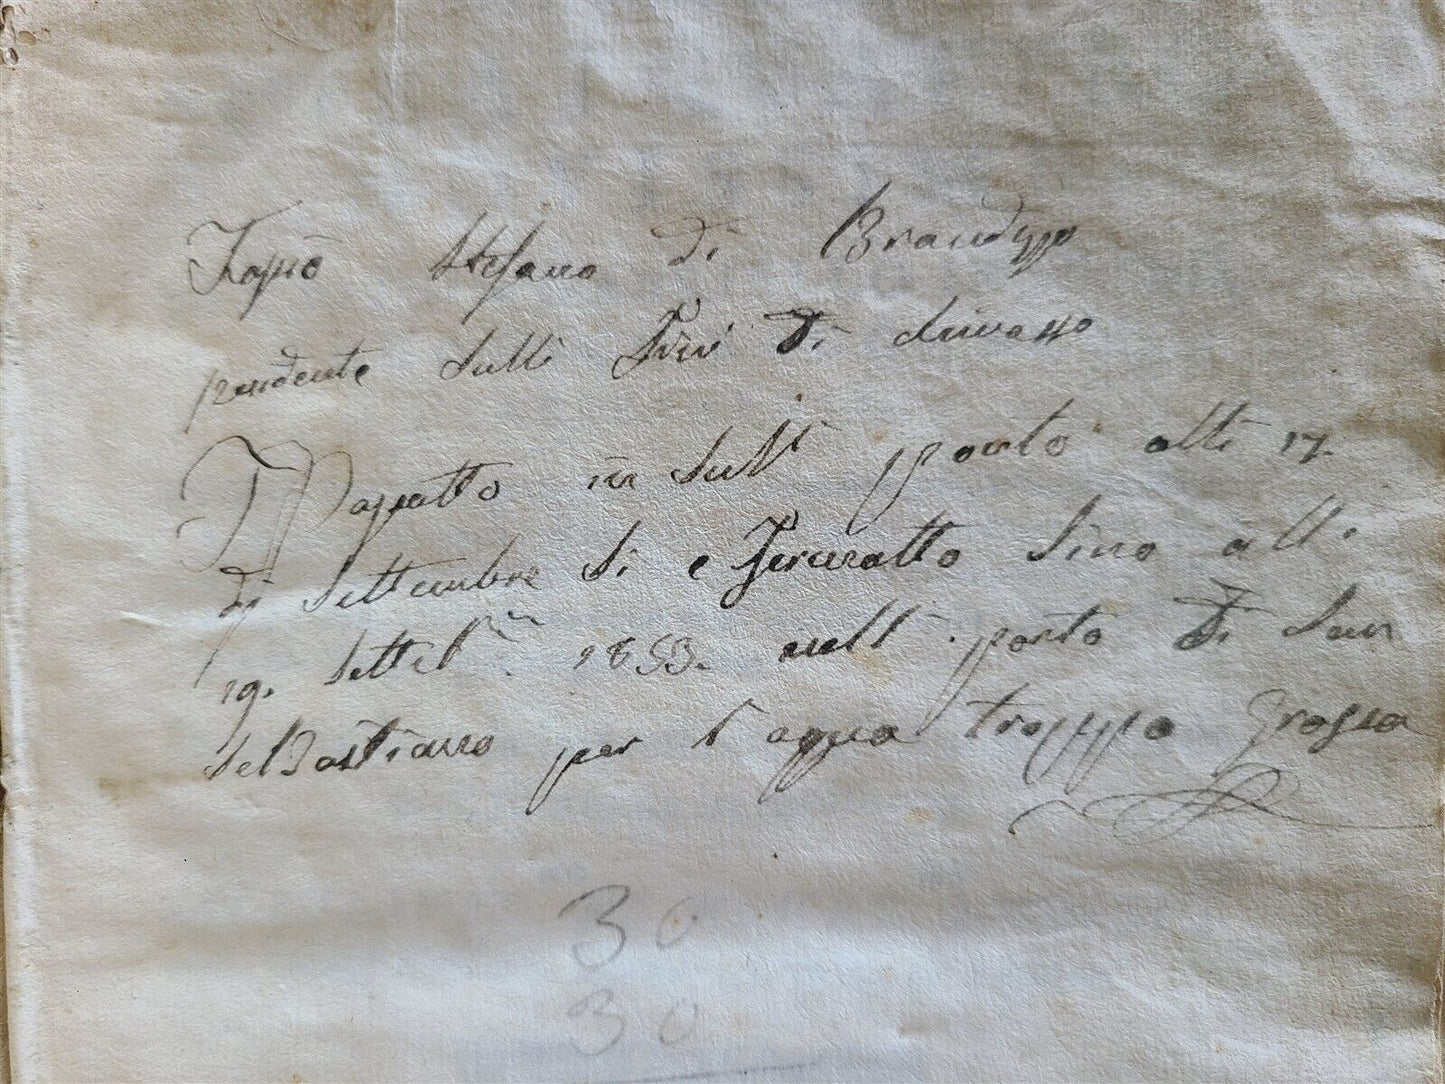 Stefano di Brandizzo
pendente Sulli di chivasso
Passatto in Sull porto alli 17.
di Settembre Si e Fermatto Sino alli
19. Settebre 1853. nell porto di San
Sebastiano per l'aqua troppo Grossa
30
30